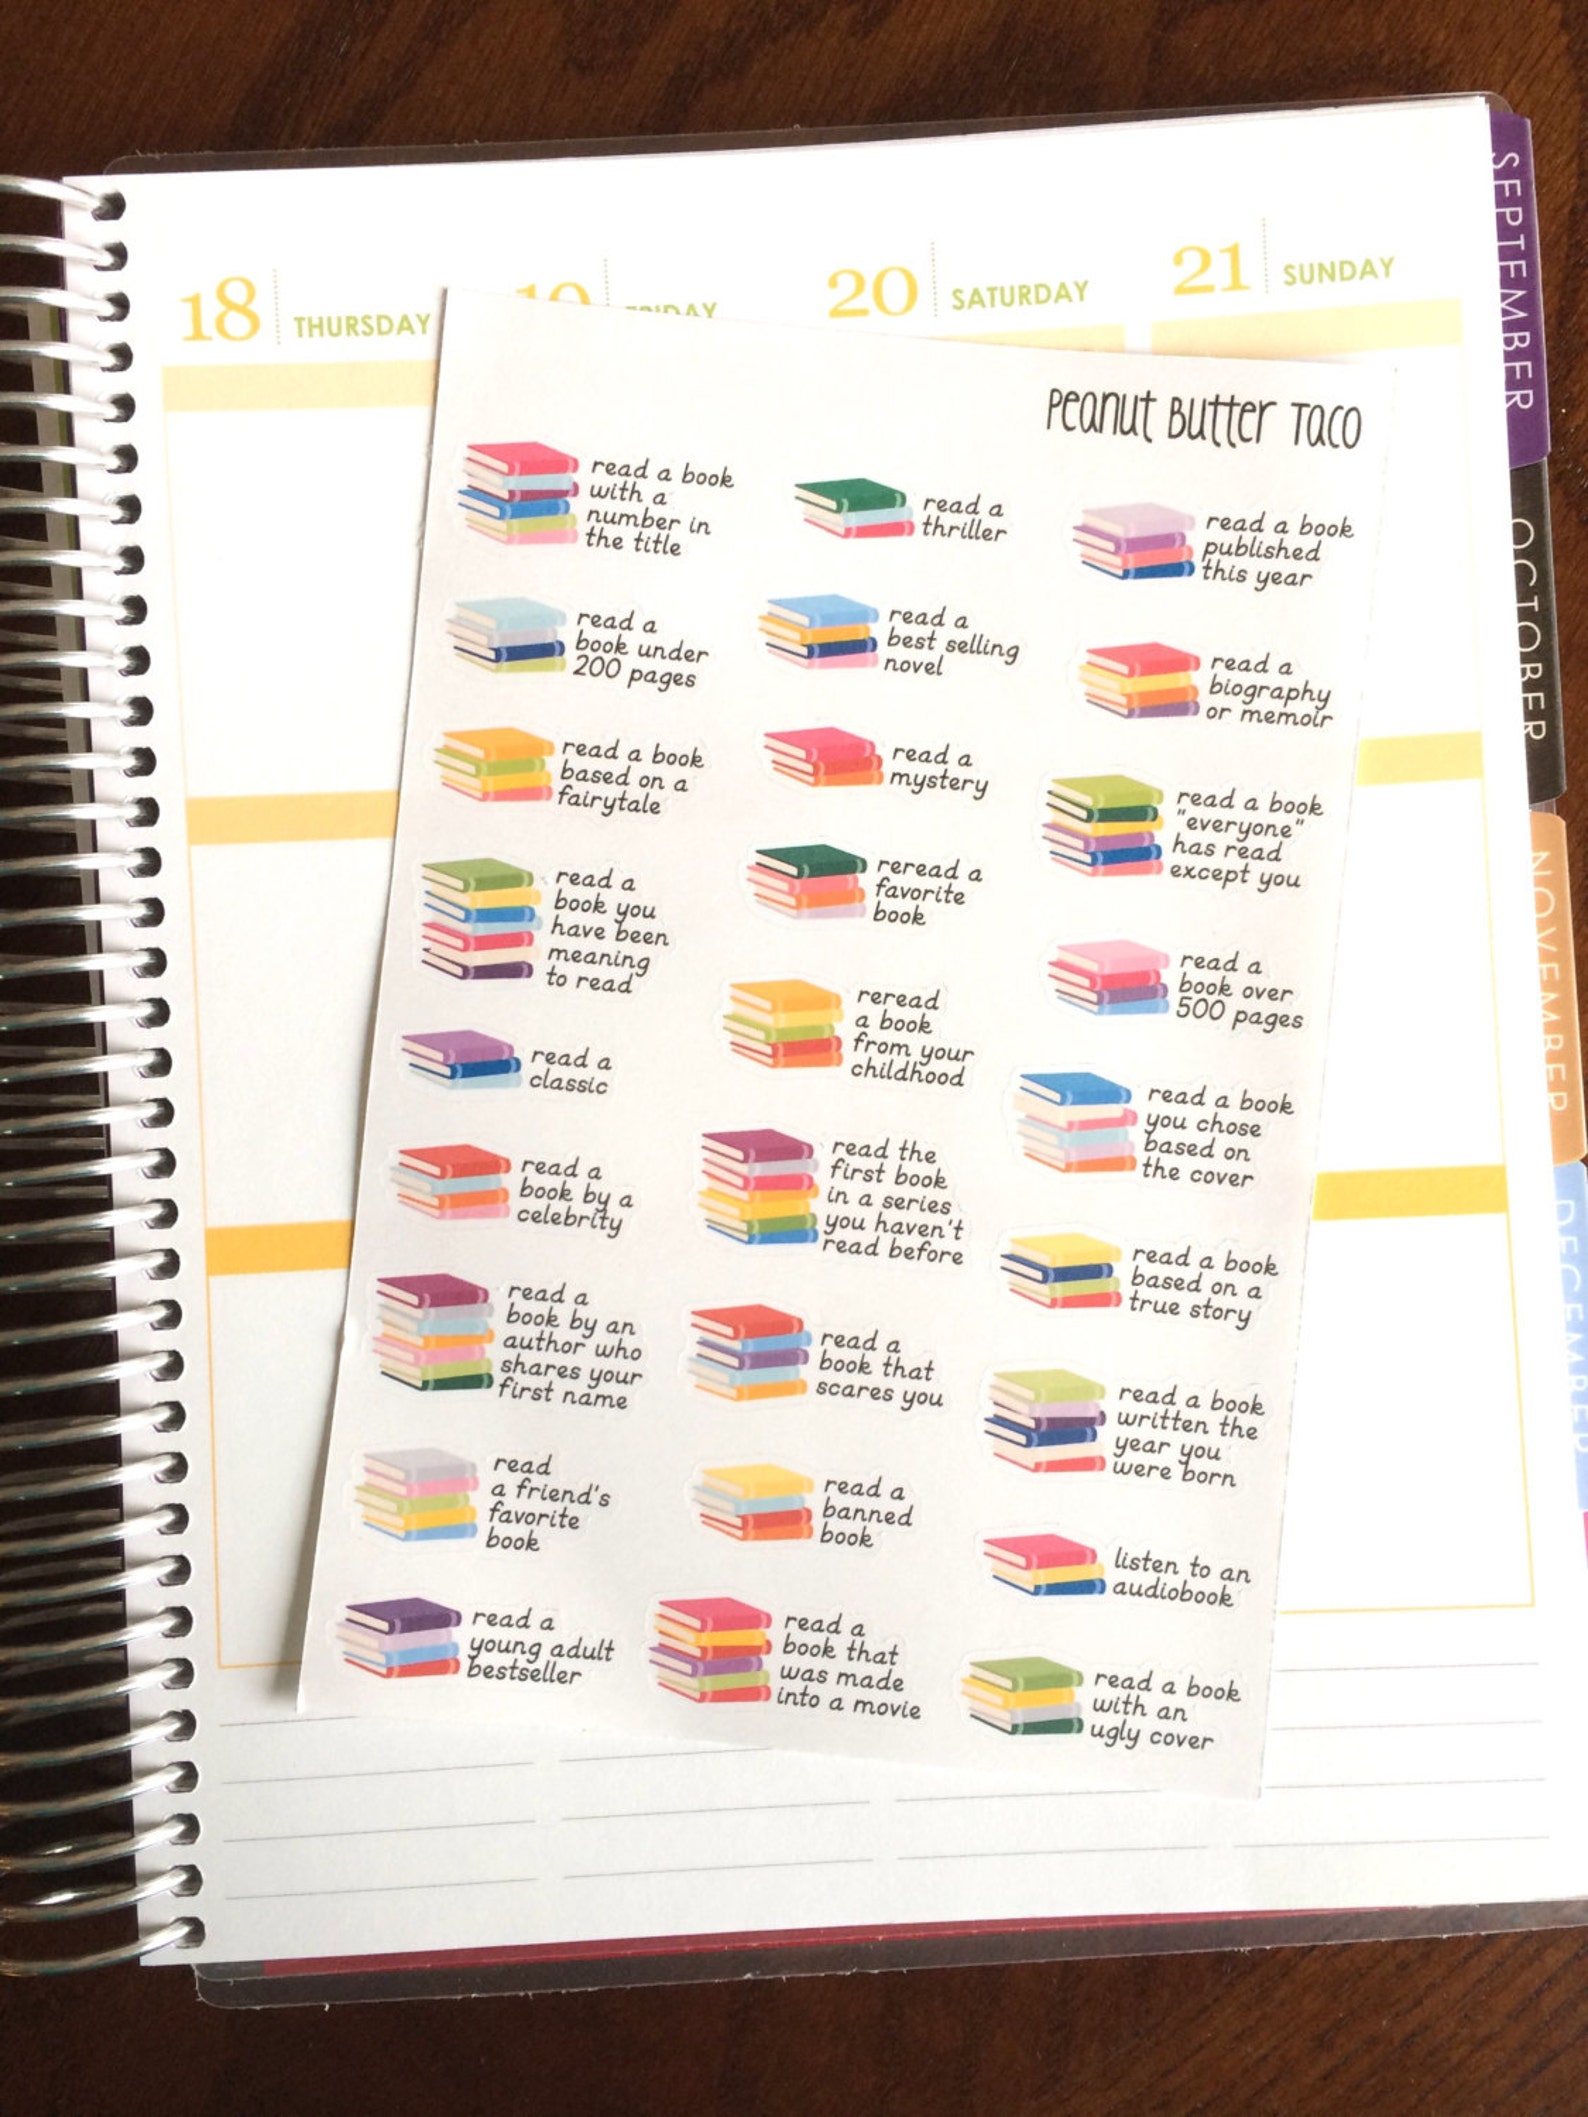 18 THURSDAY
19 FRIDAY
20 SATURDAY
21 SUNDAY
Peanut Butter Taco
read a book
with a
number in
the title
read a
book under
200 pages
read a book
based on a
fairytale
read a
book you
have been
meaning
to read
read a
classic
read a
book by a
celebrity
read a
book by an
author who
shares your
first name
read
a friend's
favorite
book
read a
young adult
bestseller
read a
thriller
read a
best selling
novel
read a
mystery
reread a
favorite
book
reread
a book
from your
childhood
read the
first book
in a series
you haven't
read before
read a
book that
scares you
read a
banned
book
read a
book that
was made
into a movie
read a book
published
this year
read a
biography
or memoir
read a book
"everyone"
has read
except you
read a
book over
500 pages
read a book
you chose
based on
the cover
read a book
based on a
true story
read a book
written the
year you
were born
listen to an
audiobook
read a book
with an
ugly cover
SEPTEMBER
OCTOBER
NOVEMBER
DECEMBER